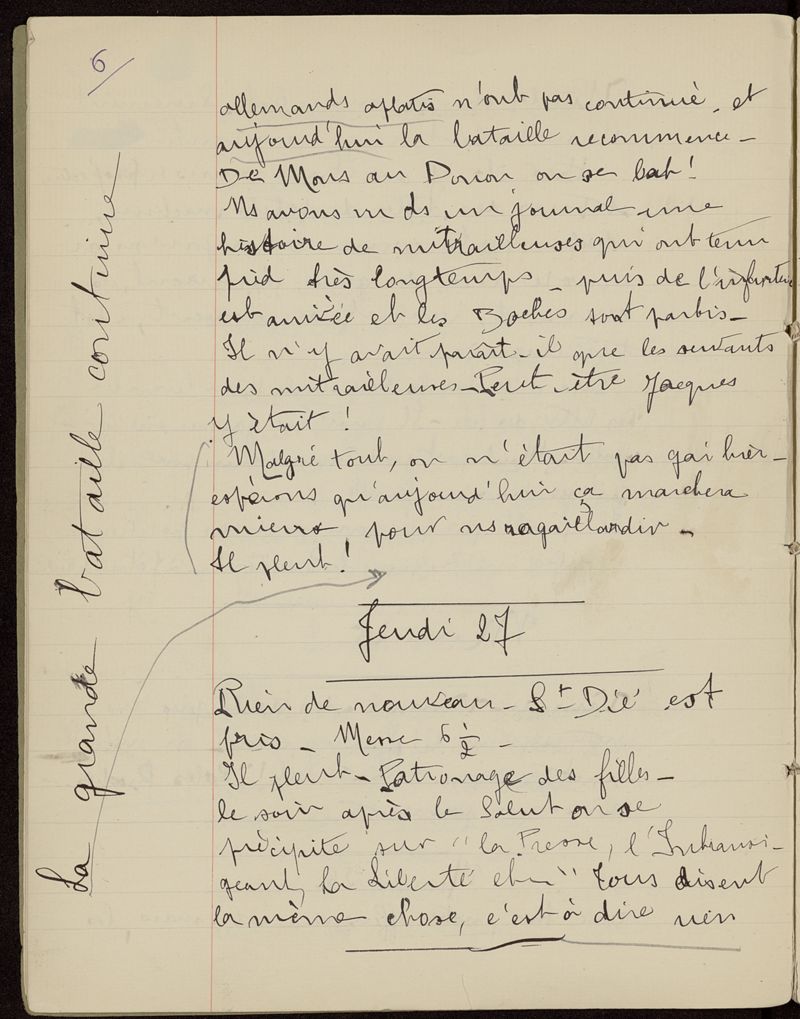 6
allemands aplatis n'ont pas continué, et
aujourd'hui la bataille recommence -
De Mons au Donon on se bat!
Ns avons vu ds un journal une
histoire de mitrailleuses qui ont tenu
pied très longtemps - puis de l'infanterie
est arrivée et les Boches sont partis -
Il n'y avait paraît-il que les servants
des mitrailleuses - Peut-être Jacques
y était !
Malgré tout, on n'était pas gai hier -
espérons qu'aujourd'hui ça marchera
mieux, pour ns ragaillardir -
Il pleut !
La grande bataille continue
Jeudi 27
Rien de nouveau - St Dié est
pris - Messe 6 1/2 -
Il pleut - Patronage des filles -
le soir après le Salut on se
précipite sur "la Presse, l'Intransi-
geant, La Liberté etc" tous disent
la même chose, c'est à dire rien